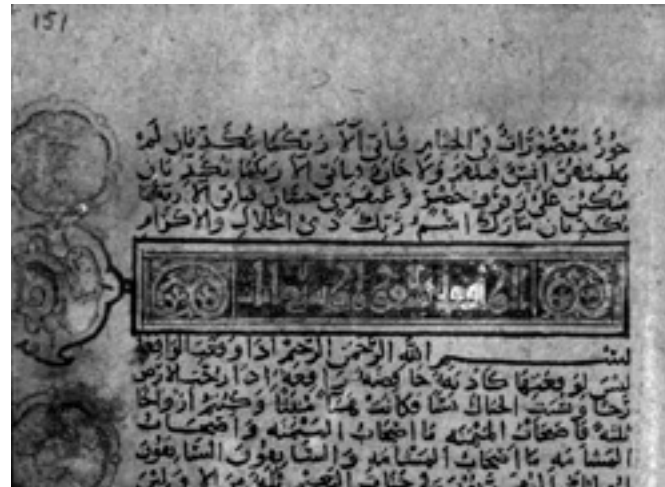 151
حور مقصورات في الخيام فبأي آلا ربكما تكذبان لم
يطمثهن انس قبلهم ولا جان فباي الا ربكما تكذبان
متكين على رفرف خضر وعبقري حسان فباي الا ربكما
تكذبان تبارك اسم ربك ذي الجلال والاكرام
بسم الله الرحمن الرحيم اذا وقعت الواقعة
ليس لوقعتها كاذبة خافضة رافعة اذا رجت الارض
رجا وبست الجبال بسا فكانت هبا منبثا وكنتم ازواجا
ثلثة فاصحاب الميمنة ما اصحاب الميمنة واصحاب
المشامة ما اصحاب المشامة والسابقون السابقون